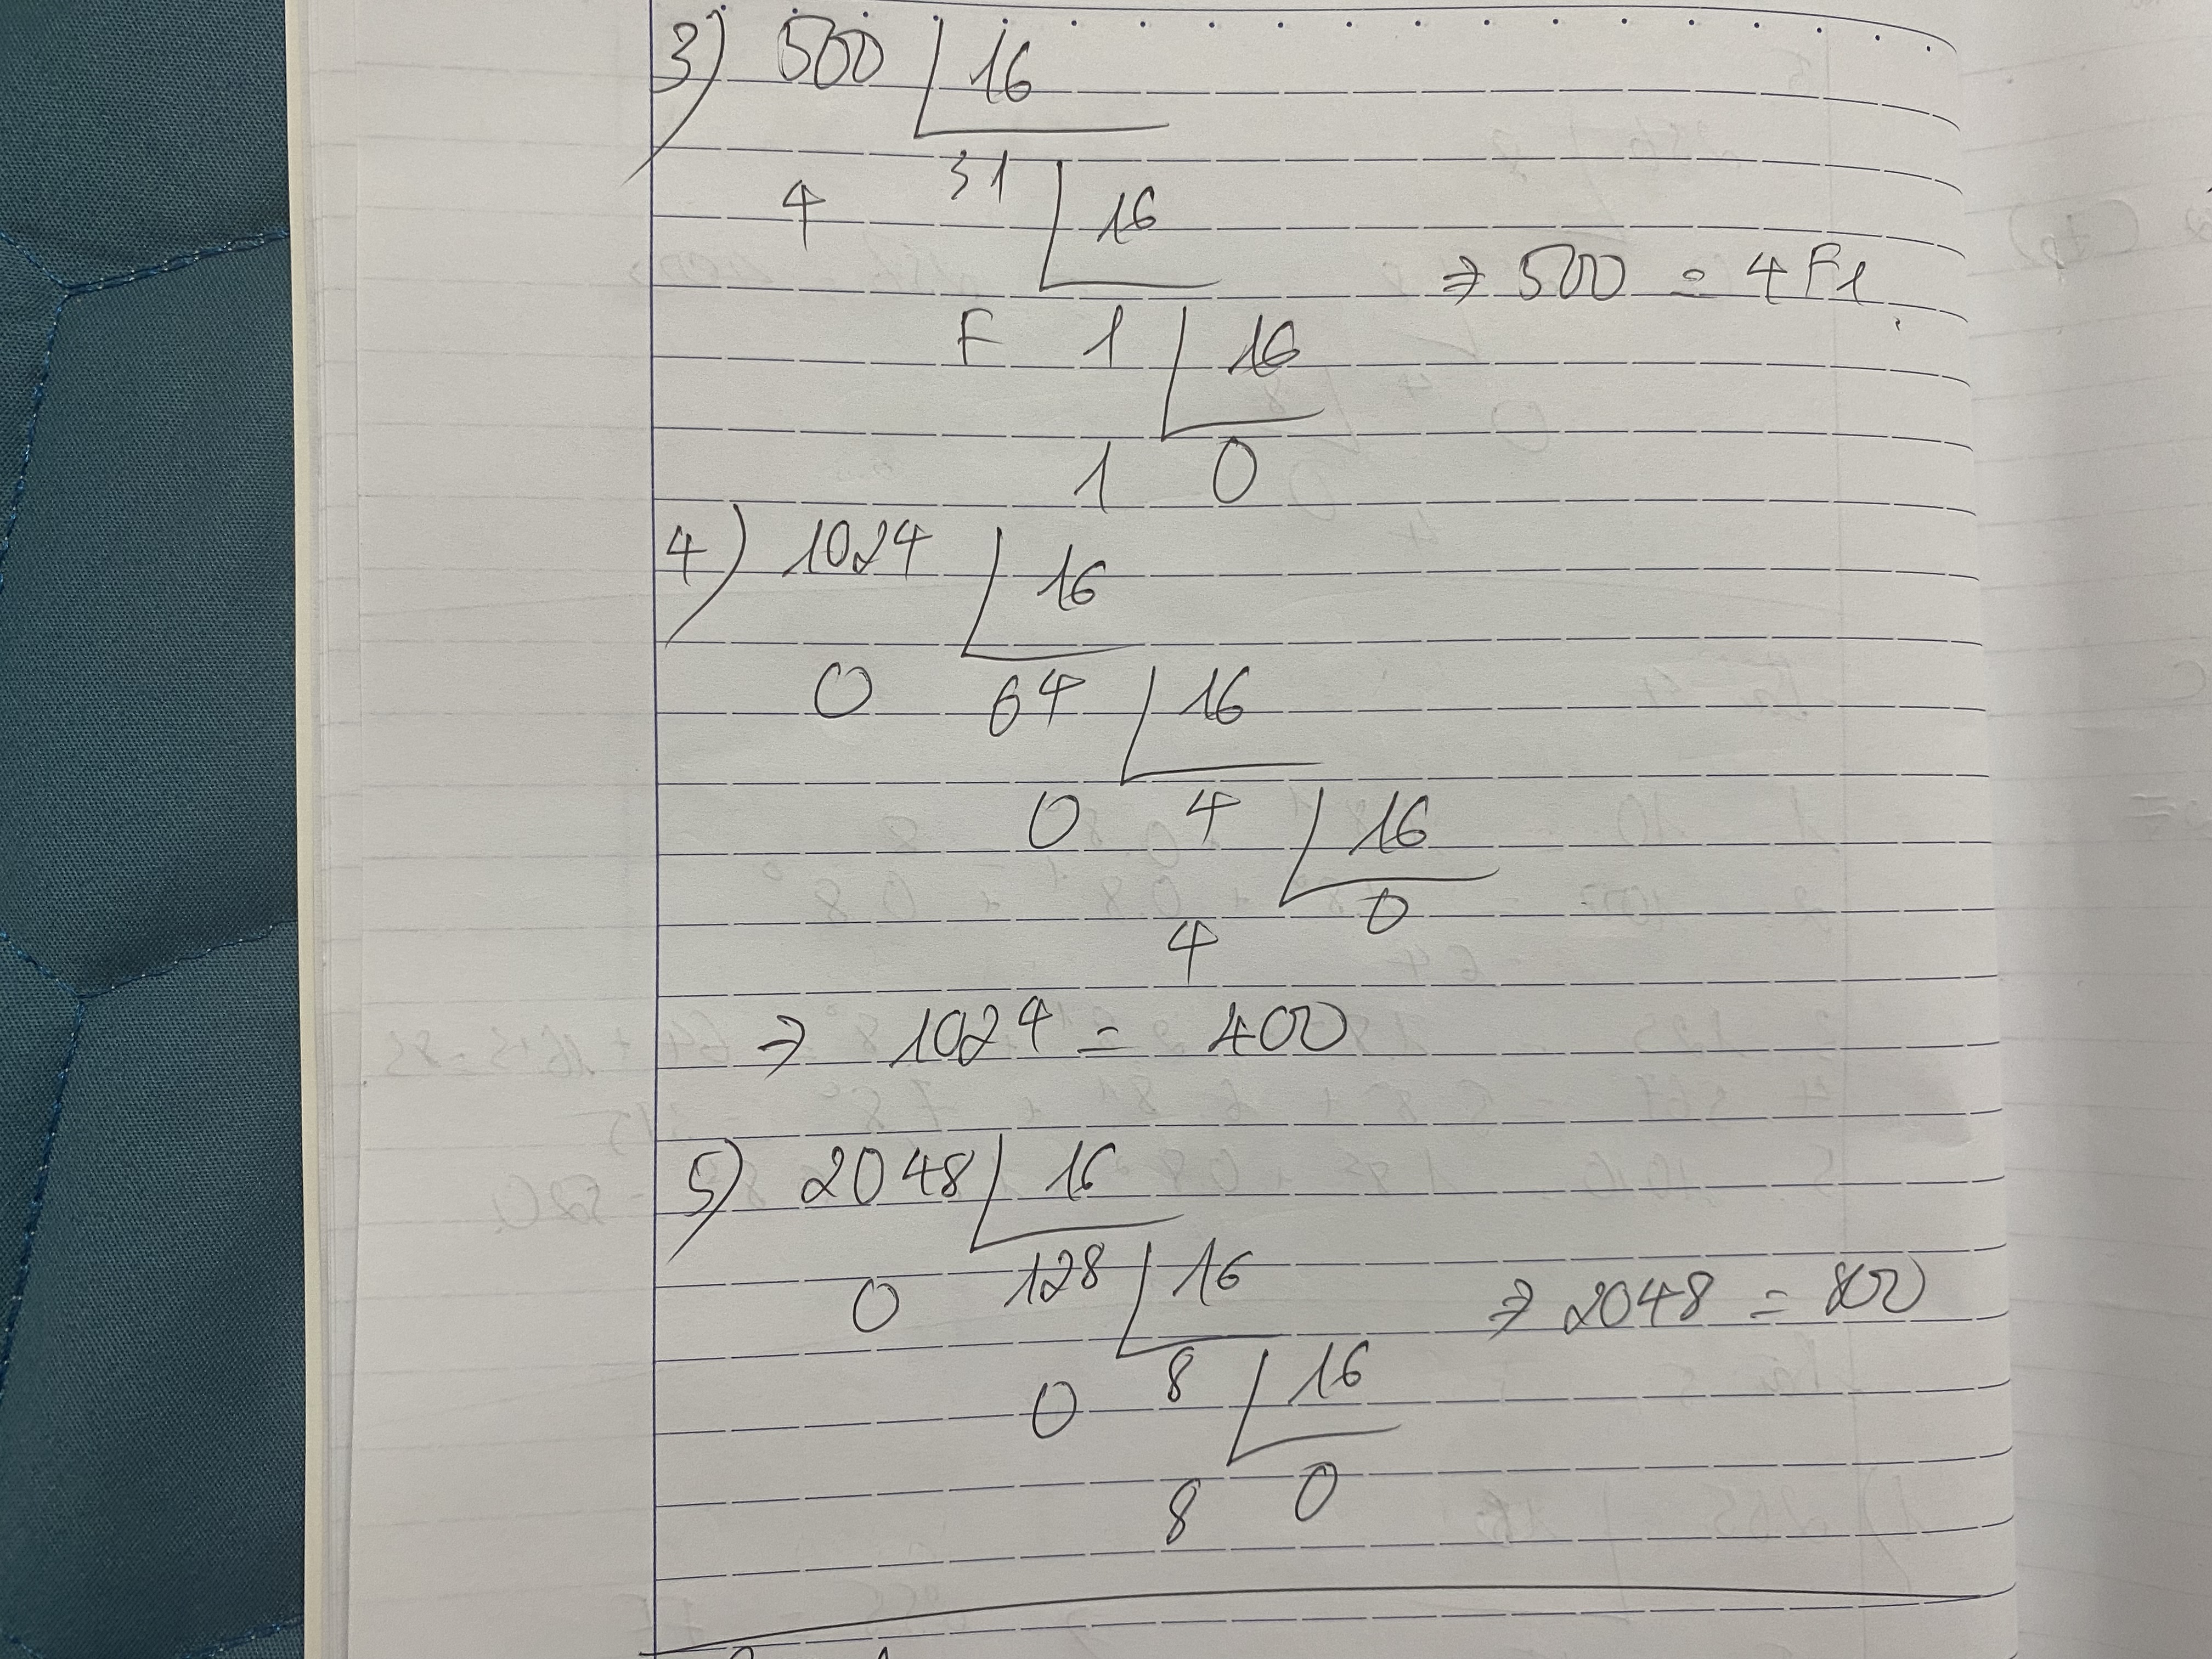 3) 500 | 16
4 31 | 16
F 1 | 16 ⇒ 500 = 4F1
1 0
4) 1024 | 16
0 64 | 16
0 4 | 16
4 0
→ 1024 = 400
5) 2048 | 16
0 128 | 16 ⇒ 2048 = 800
0 8 | 16
8 0